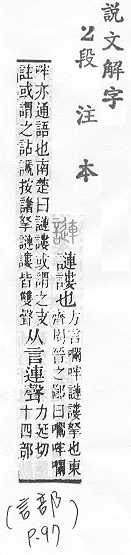 說文解字
之段注本
謰
謰謱也
方言囒哰謰謱拏也東
齊周晉之鄙曰囒哰囒
哰亦通語也南楚曰謰謱或謂之支
註或謂之詀謕按諸拏謰謱皆雙聲
从言連聲
力延切
十四部
(言部)
P.97